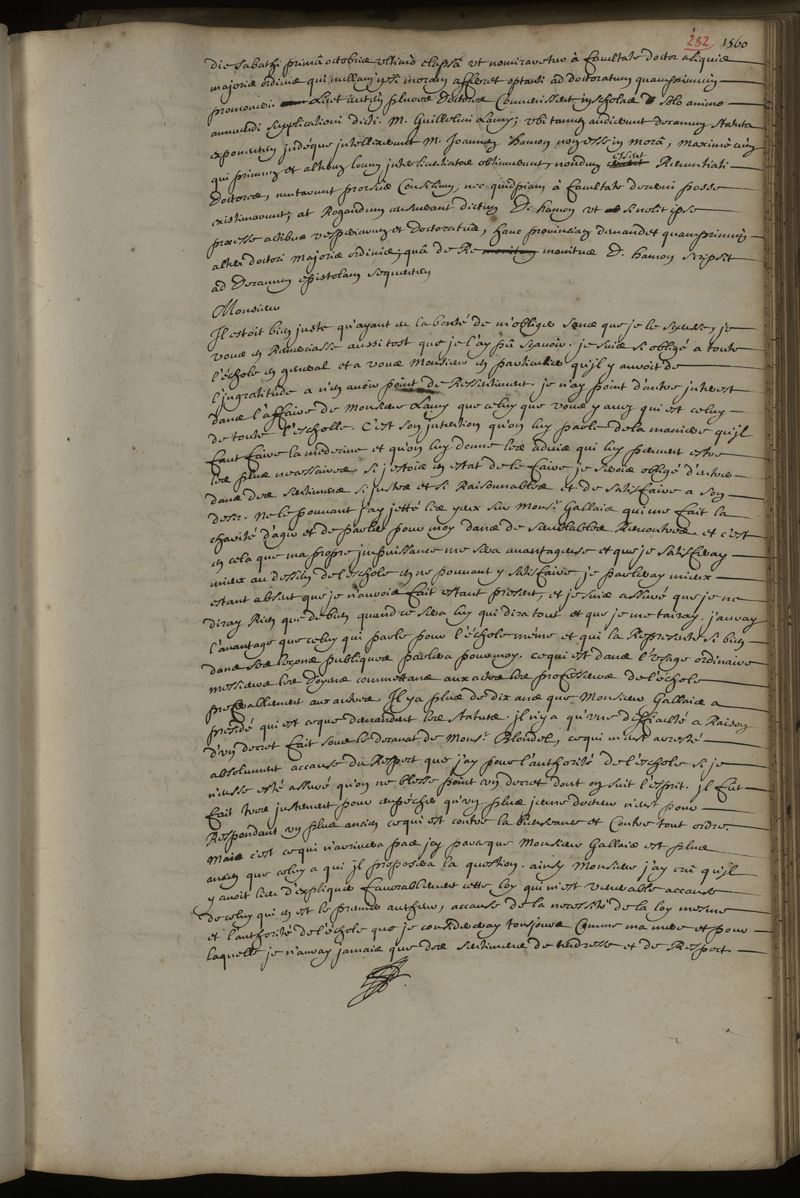 282 1560
die sabathi primâ octobris ultimò elapsâ ut nominaretur à facultate doctor aliquis
majoris ordinis qui nullam ipsi moram afferret optanti ad doctoratum quamprimum
promoveri. Licet autem plures Doctores convenissent in scholas solo animo
annuendi supplicationi dicti M. Guillelmi Lamy; ubi tamen audierunt decanum statuta
exponentem indéque intellexerunt M. Joannem hamon non esse in morâ, maximè cùm
qui primum et alterum locum in licentiatu obtinuerunt, nondum essent Renuntiati
Doctores, mutarunt prorsus consilium, nec quidpiam à facultate decerni posse
existimarunt; at Rogandum censuerunt dictum D. hamon ut si nolit ipse
præesse actibus vesperiarum et Doctoratus, hanc provinciam demandet quamprimum
alteri doctori majoris ordinis; quâ de Re monitus D. hamon scripsit
ad Decanum epistolam sequentem
Monsieur
Il estoit bien juste qu'ayant eu la bonté de m'obliger sans que je le sceusse, je
vous en Remerciasse aussi tost que je l'ay pû sçavoir. je suis si obligé a toute
l'échole en general et a vous Monsieur en particulier qu'il y auroit de
l'ingratitude a n'en avoir point de Ressentiment. je n'ay point d'autre interest
dans l'affaire de Monsieur Lamy que celuy que vous y avez qui est celuy
de toute l'escholle. C'est son intention qu'on luy parle de la maniere qu'il
faut faire la medecine et qu'on luy donne les advis qui luy peuvent estre
les plus necessaires. si j'estois en estat de le faire je serois obligé d'entrer
dans des sentimens si justes et si Raisonnables et de satisfaire a son
desir. Ne le pouvant j'ay jetté les yeux sur Monsr. Gallais qui me fait la
charité d'agir et de parler pour moy dans de semblables Rencontres. et c'est
en cela que ma propre impuissance me sera avantageuse et que je satisferay
mieux au dessein de l'échole en ne pouvant y satisfaire je parleray mieux
estant absent que je n'aurois fait estant present, et je suis assuré que je ne
diray Rien que de bien quand ce sera luy qui dira tout et que je me tairay. j'auray
l'avantage que celuy qui parle pour l'échole même et qui la Represente si bien
dans ses leçons publiques parlera pour moy. ce qui est dans l'usage ordinaire
messieurs les Doyens commettans aux actes les professeurs de l'échole
preferablement aux autres. Il y a plus de dix ans que Monsieur Gallais a
presidé qui est ce que demandent les statuts. il n'y a qu'une difficulté a Raison
d'un decret fait sous le decanat de Monsr. Blondel, ce qui m'eut aresté
absolument accause du Respect que j'ay pour l'authorité de l'échole si je
n'eusse esté assuré qu'on ne blesse point un decret dont on suit l'esprit. il fut
fait tres justement pour empécher qu'un plus jeune docteur n'eust pour
Respondant un plus ancien ce qui est contre la bienseance et contre tout ordre.
Mais c'est ce qui n'arrivera pas icy parceque Monsieur Gallais est plus
ancien que celuy a qui il proposera la question. ainsy Monsieur j'ay crû qu'il
y avoit lieu d'expliquer favorablement cette loy qui m'est venerable accause
de celuy qui en est le premier autheur, accause de la necessité de la loy mesme
et l'authorité de l'échole que je considereray tousjours comme ma mere et pour
laquelle je n'auray jamais que des sentimens de tendresse et de Respect.